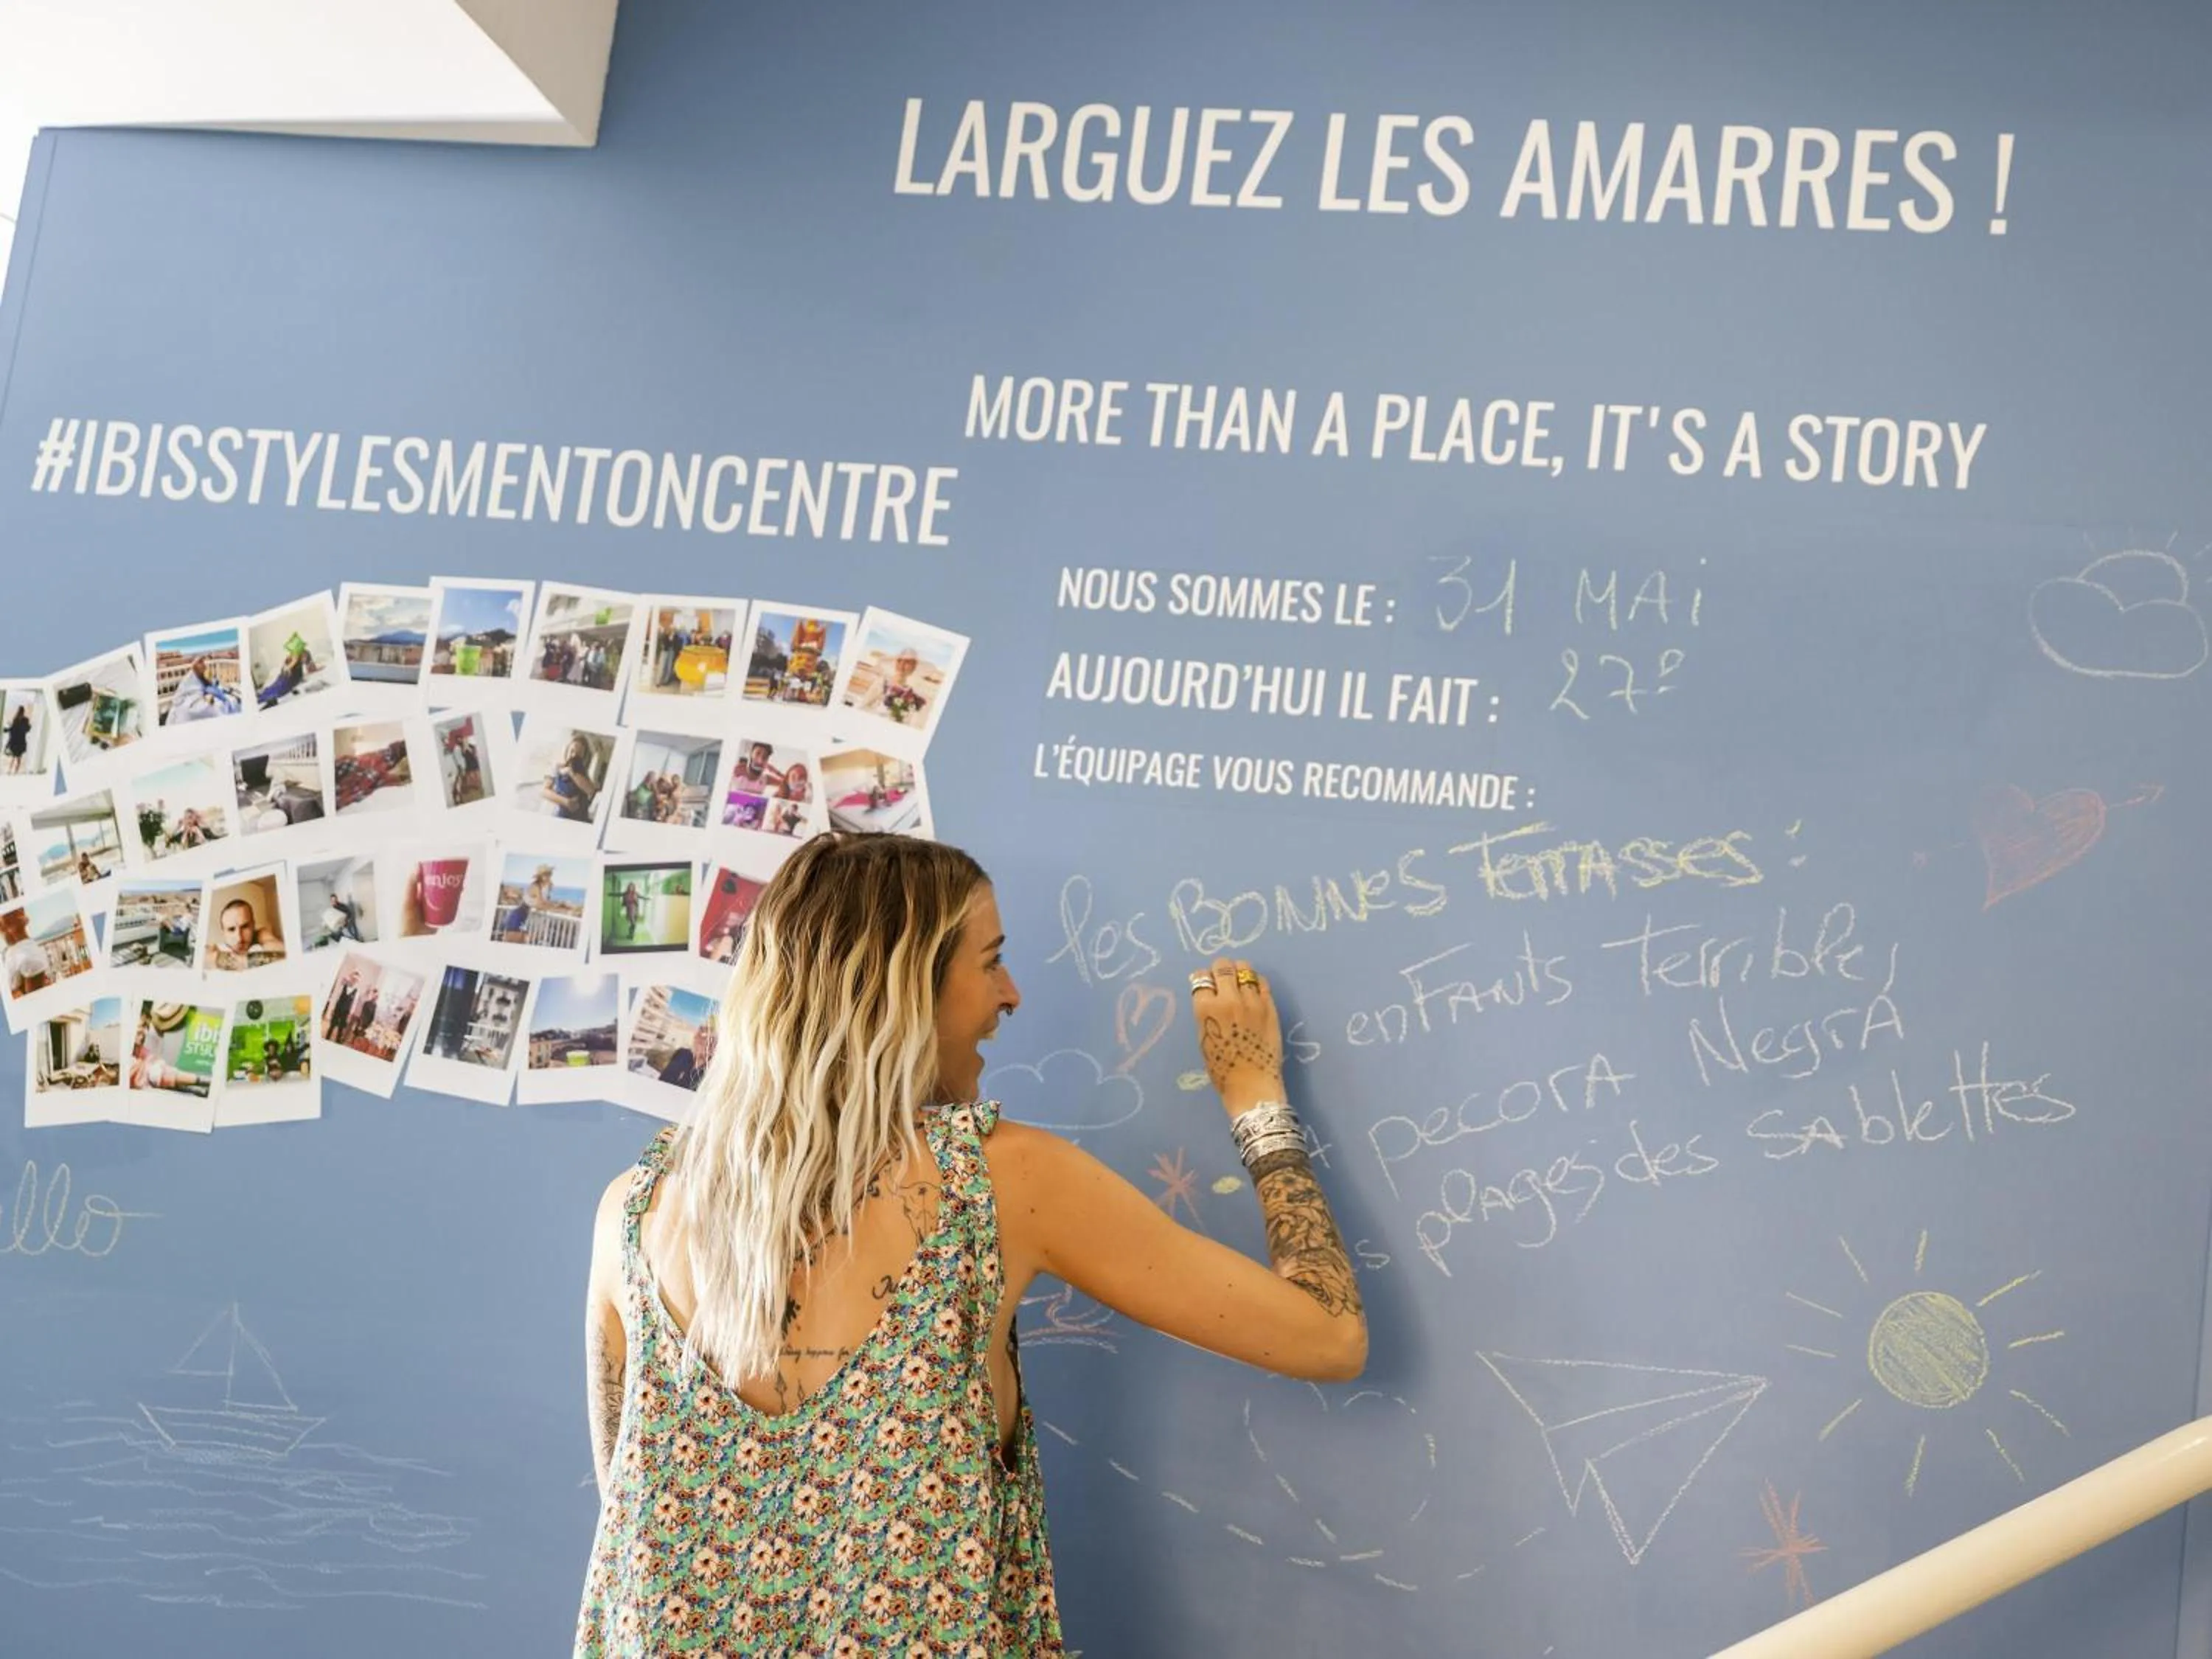 LARGUEZ LES AMARRES !
MORE THAN A PLACE, IT'S A STORY
#IBISSTYLESMENTONCENTRE
NOUS SOMMES LE : 31 MAi
AUJOURD'HUI IL FAIT : 27º
L'ÉQUIPAGE VOUS RECOMMANDE :
les BONNES TerrASSES :
enFANts Terribles
pecorA NegrA
plAges des SAblettes
enjoy
ibis
STYLES